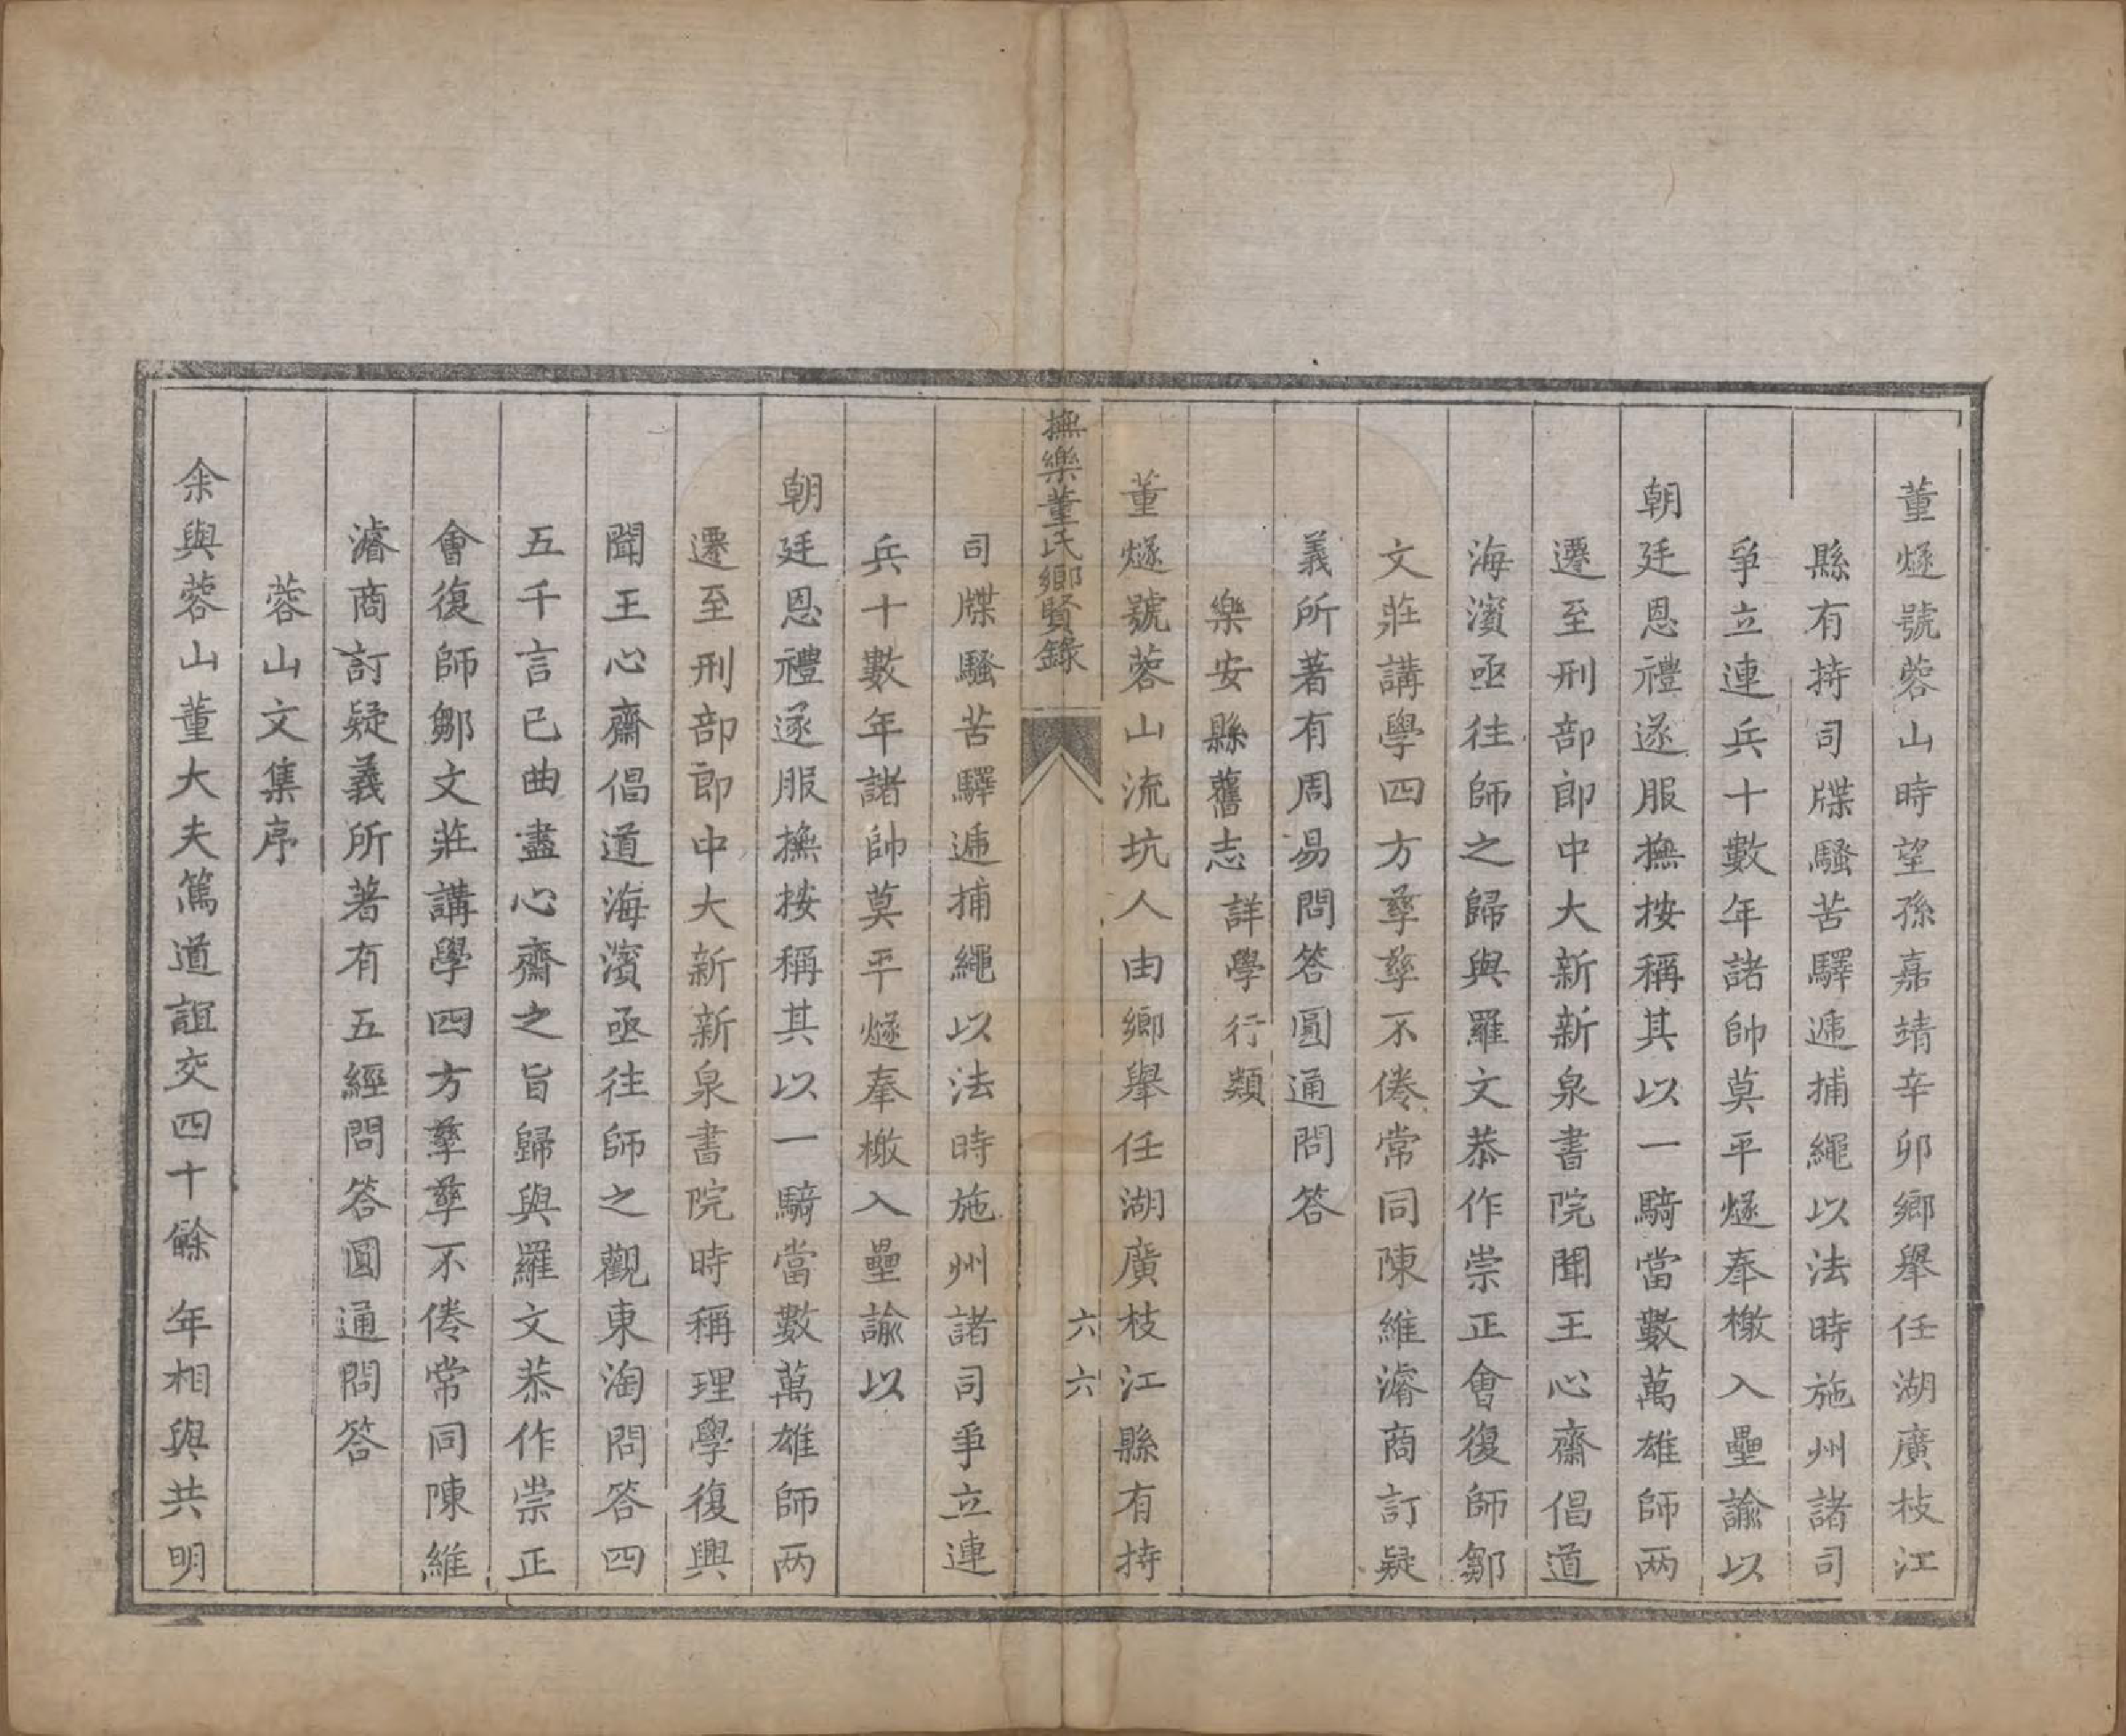 董燧號蓉山時望孫嘉靖辛卯鄉舉任湖廣枝江
縣有持司牒騷苦驛遞捕繩以法時施州諸司
爭立連兵十數年諸帥莫平燧奉檄入壘諭以
朝廷恩禮遂服撫按稱其以一騎當數萬雄師两
遷至刑部郎中大新新泉書院聞王心齋倡道
海濱亟往師之歸與羅文恭作崇正會復師鄒
文莊講學四方孳孳不倦常同陳維濬商訂疑
義所著有周易問答圓通問答
樂安縣舊志詳學行類
董燧號蓉山流坑人由鄉舉任湖廣枝江縣有持
撫樂董氏鄉賢錄
六六
司牒騷苦驛遞捕繩以法時施州諸司爭立連
兵十數年諸帥莫平燧奉檄入壘諭以
朝廷恩禮遂服撫按稱其以一騎當數萬雄師两
遷至刑部郎中大新新泉書院時稱理學復興
聞王心齋倡道海濱亟往師之觀東淘問答四
五千言已曲盡心齋之旨歸與羅文恭作崇正
會復師鄒文莊講學四方孳孳不倦常同陳維
濬商訂疑義所著有五經問答圓通問答
蓉山文集序
余與蓉山董大夫篤道誼交四十餘年相與共明